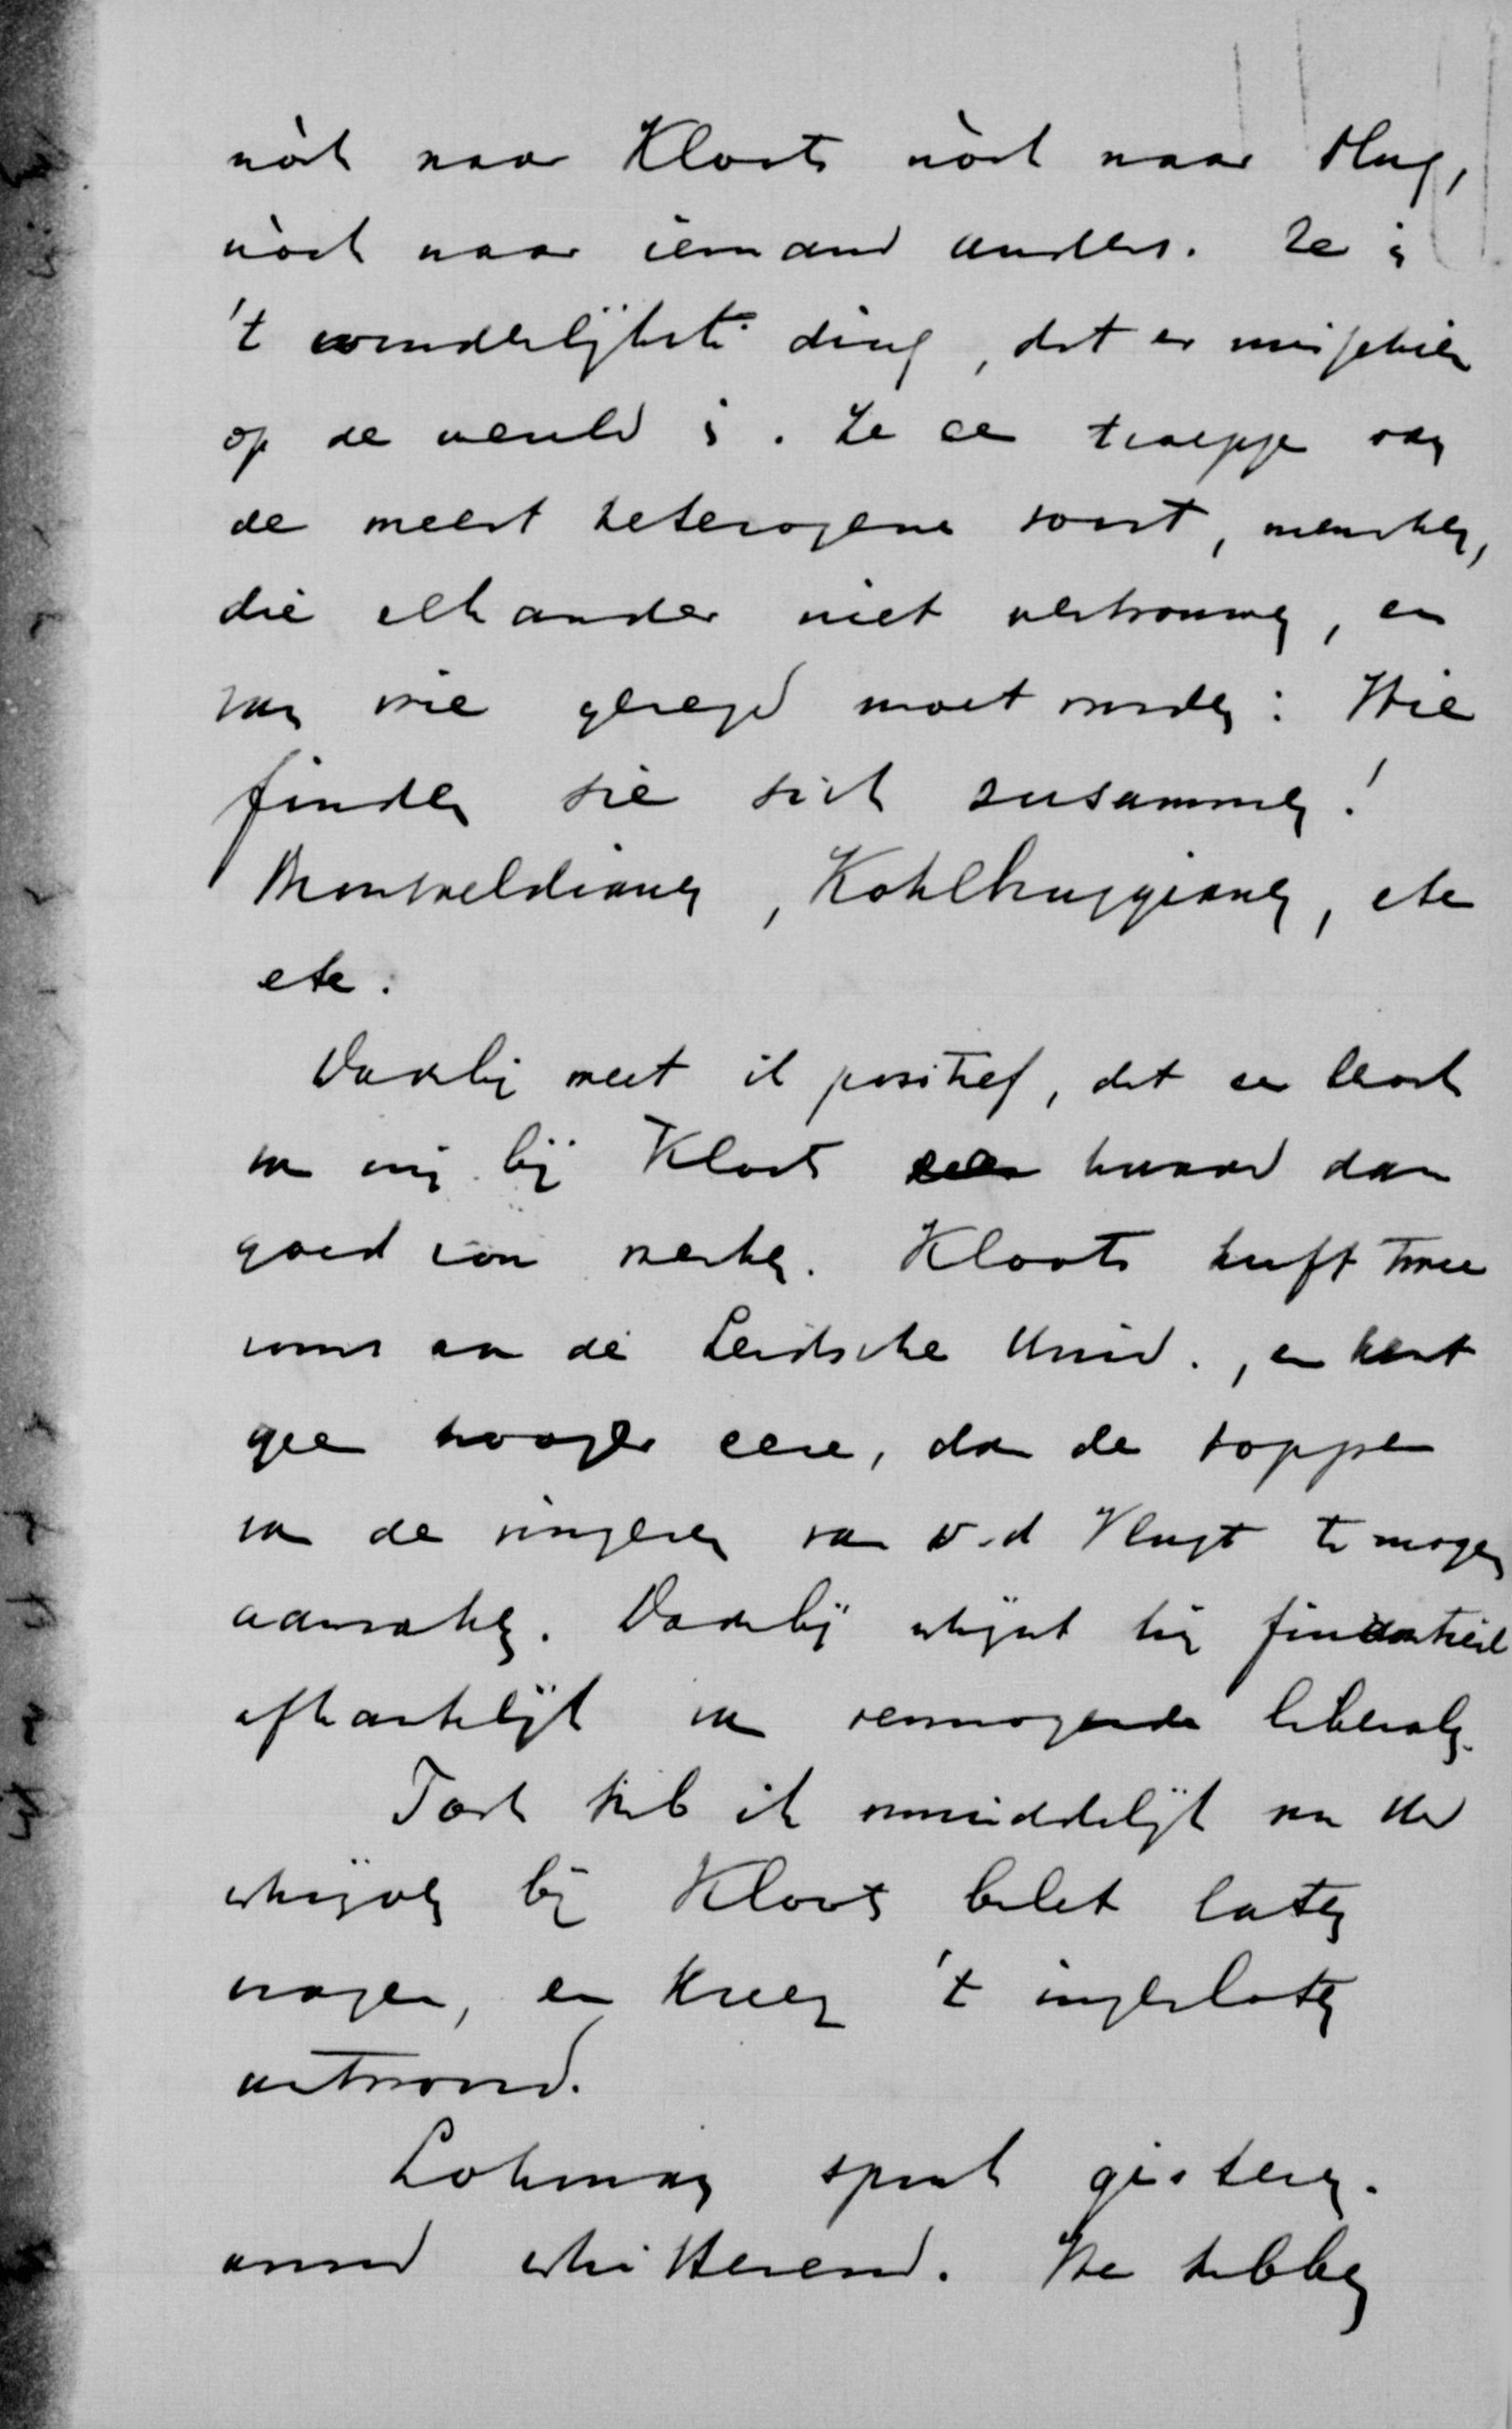 nòch naar Kloots nòch naar Hug,
nòch naar iemand anders. Ze is
't wonderlijkste ding, dat er misschien
op de wereld is. Ze een troepje van
de meest heterogene soort, menschen,
die elkander niet vertrouwen, en
van wie gezegd moet worden: Wie
finden sie sich zusammen!
Monsveldianen, Kohlbruggianen, etc
etc.
Daarbij weet ik positief, dat een bezoek
van mij bij Kloots zeer kwaad dan
goed zou werken. Kloots heeft twee
zoons aan de Leidsche Univ., en kent
geen hooger eere, dan de toppen
van de vingeren van v.d Vlugt te mogen
aanraken. Daarbij schijnt hij financieel
afhankelijk van vermogende liberalen.
Toch heb ik onmiddelijk na Uw
schrijven bij Kloots belet laten
vragen, en kreeg 't ingesloten
antwoord.
Lohman sprak gisteren.
avond schitterend. We hebben